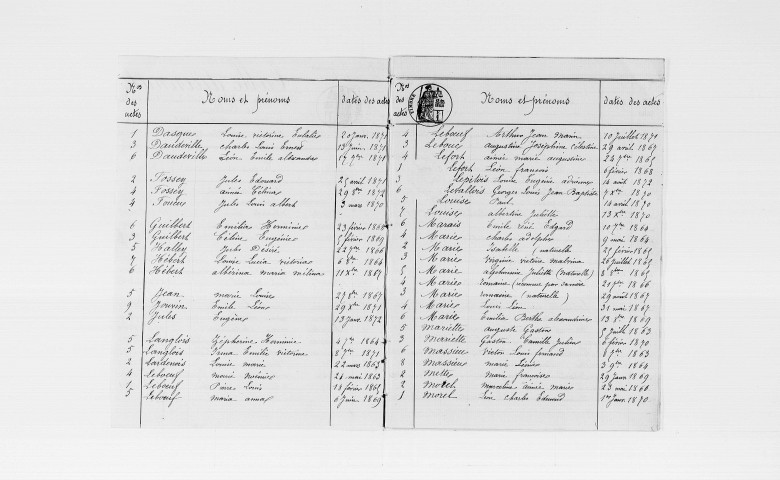 Nos des actes
Noms et prénoms
dates des actes
1 Dasque Louis victorine Eulalie 20 Janv. 1871
3 Daudeville Charles Louis Ernest 13 Juin 1871
6 Daudeville Léon Emile alexandre 1871
2 Fossey Jules Edouard 25 avril 1871
4 Fossey année 29 8bre 1872
4 Jules Louis albert 3 mars 1870
6 Guilbert Emilia Herminie 23 février 1868
3 Guilbert Céline Eugénie 5 février 1869
5 Halley Jules Désiré 22 7bre 1866
7 Hébert Louise Lucia victorine 6 8bre 1864
6 Hébert albérina maria mélina 11 Xbre 1867
5 Jean marie Louise 27 8bre 1867
9 Jouvin Emile Léon 29 Xbre 1871
2 Jules Eugène 13 Janv. 1872
5 Langlois Zéphirine Herminie 4 7bre 1864
5 Langlois Irma Emilie victorine 8 7bre 1871
2 Lardenois Louise marie 22 mars 1863
4 Leboeuf 21 mai 1863
1 Leboeuf Louis 18 février 1865
5 Leboeuf maria anna 6 Juin 1869
Nos des actes
TIMBRE
Noms et prénoms
dates des actes
4 Leboeuf Arthur Jean Marin 10 Juillet 1870
3 Lebouc augustine Joséphine Célestine 29 avril 1869
4 Lefort aimée marie augustine 24 7bre 1865
1 Lefort Léon françois 6 février 1868
3 Louise Eugénie 14 août 1872
6 Letellier Georges Louis Jean Baptiste 7 Xbre 1870
5 Louise Paul 14 avril 1870
7 Louise albertine Juliette 13 Xbre 1870
6 Marais Emile René Edgard 10 7bre 1864
4 Marie Charles adolphe 9 mai 1864
2 Marie Isabelle (naturelle) février 1865
3 Marie virginie victoria malvina 26 Juillet 1865
5 Marie alphonsine Juliette (naturelle) 3 8bre 1865
4 Marie 21 7bre 1866
3 Marie (naturelle) 29 août 1867
4 Marie Louis Léon 31 mai 1867
6 Marie Emilia Berthe alexandrine 13 8bre 1869
5 Mariette auguste Gaston 5 Juillet 1863
3 Mariette Gaston Camille Julien 6 février 1870
6 Massieu victor Louis fernand 8 7bre 1863
8 Massieu marie Léonie 3 9bre 1864
2 marie françoise 29 Janv. 1869
2 Morel marceline aimée marie 23 mai 1866
1 Morel Léon Charles Edmond 1er Janv. 1870